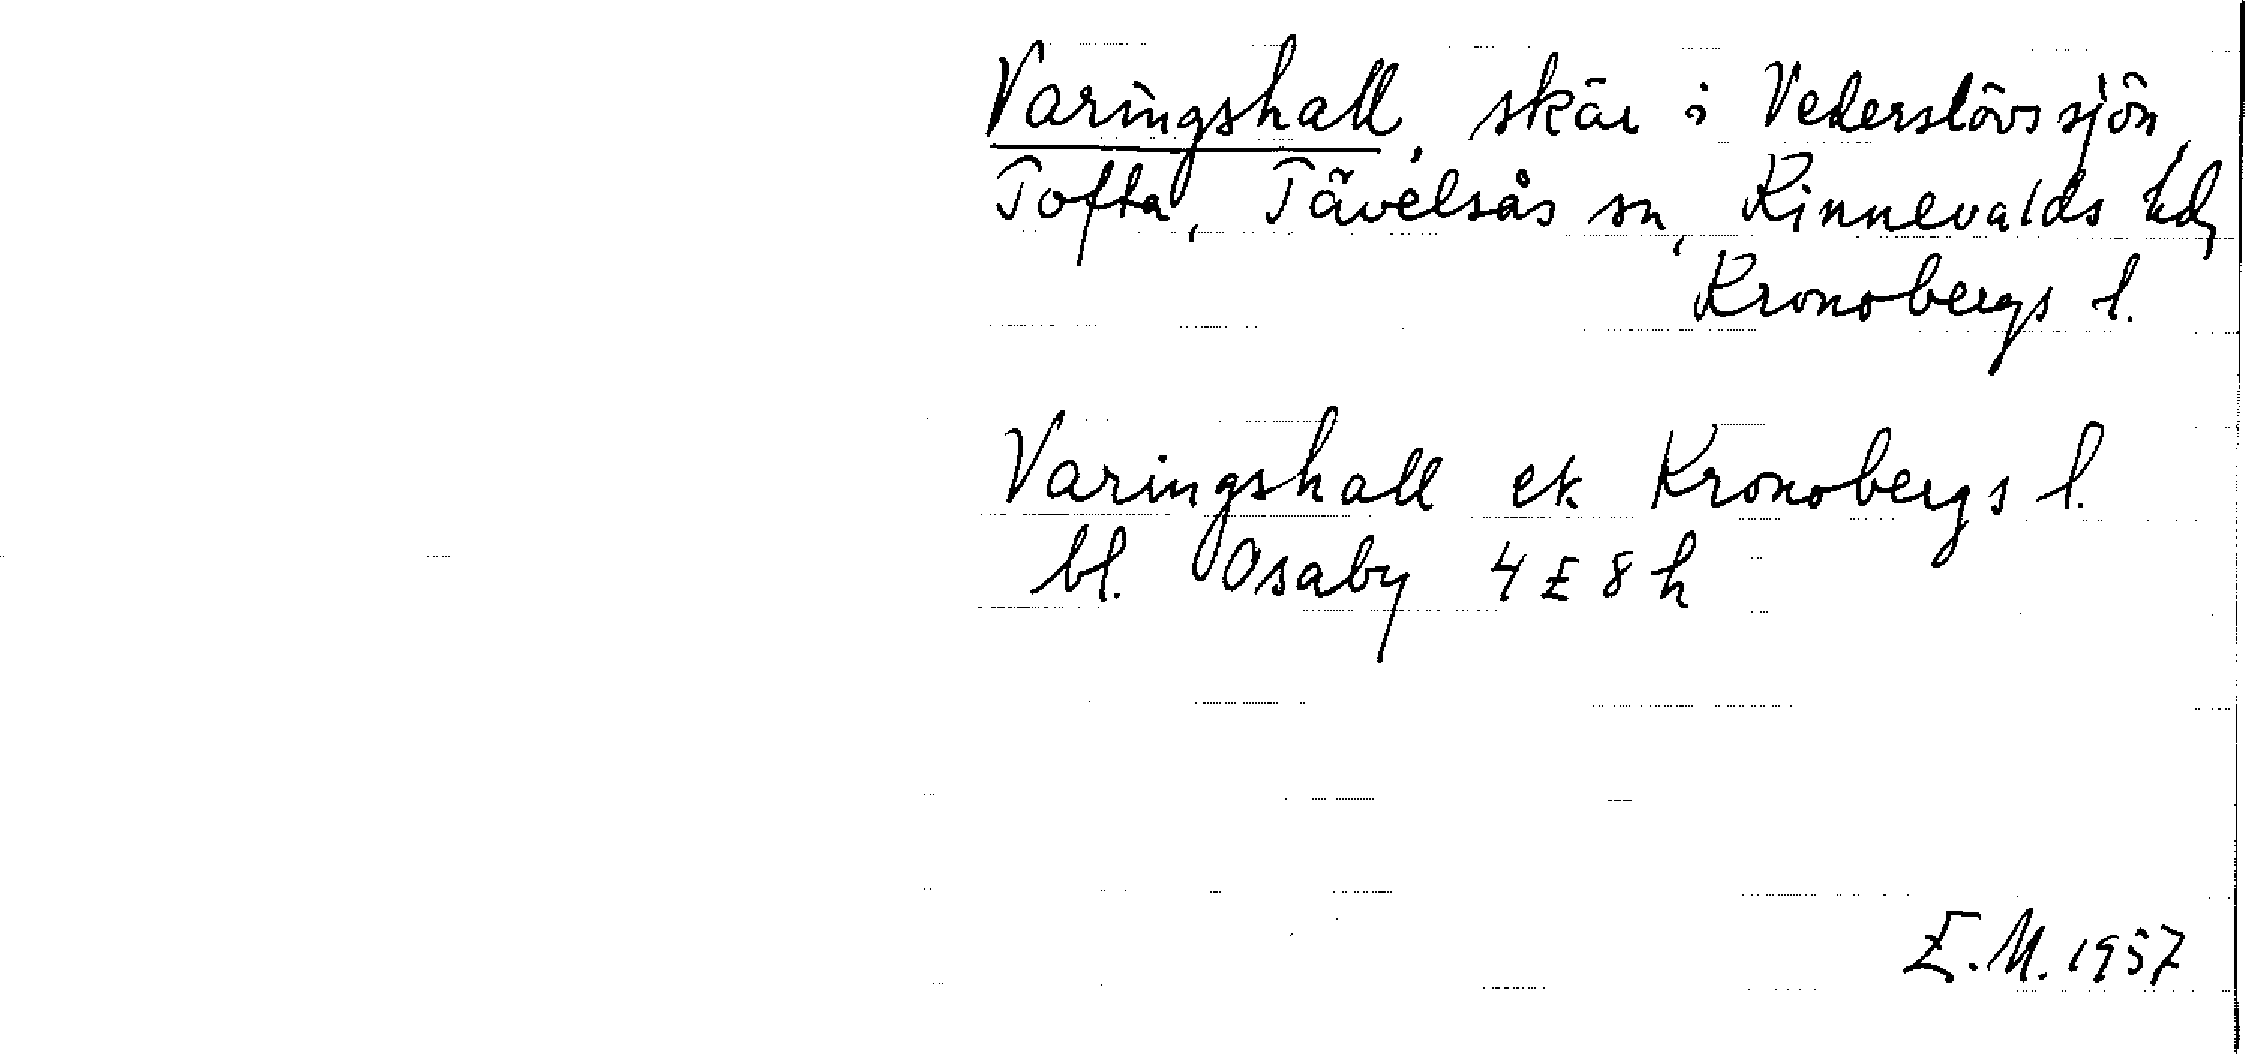 Varingshall, skär i Vederslövssjön,
Tofta, Tävelsås sn, Kinnevalds hd,
Kronobergs l.
Varingshall ek Kronobergs l.
bl. Osaby 4 E 8 h
E.M. 1957